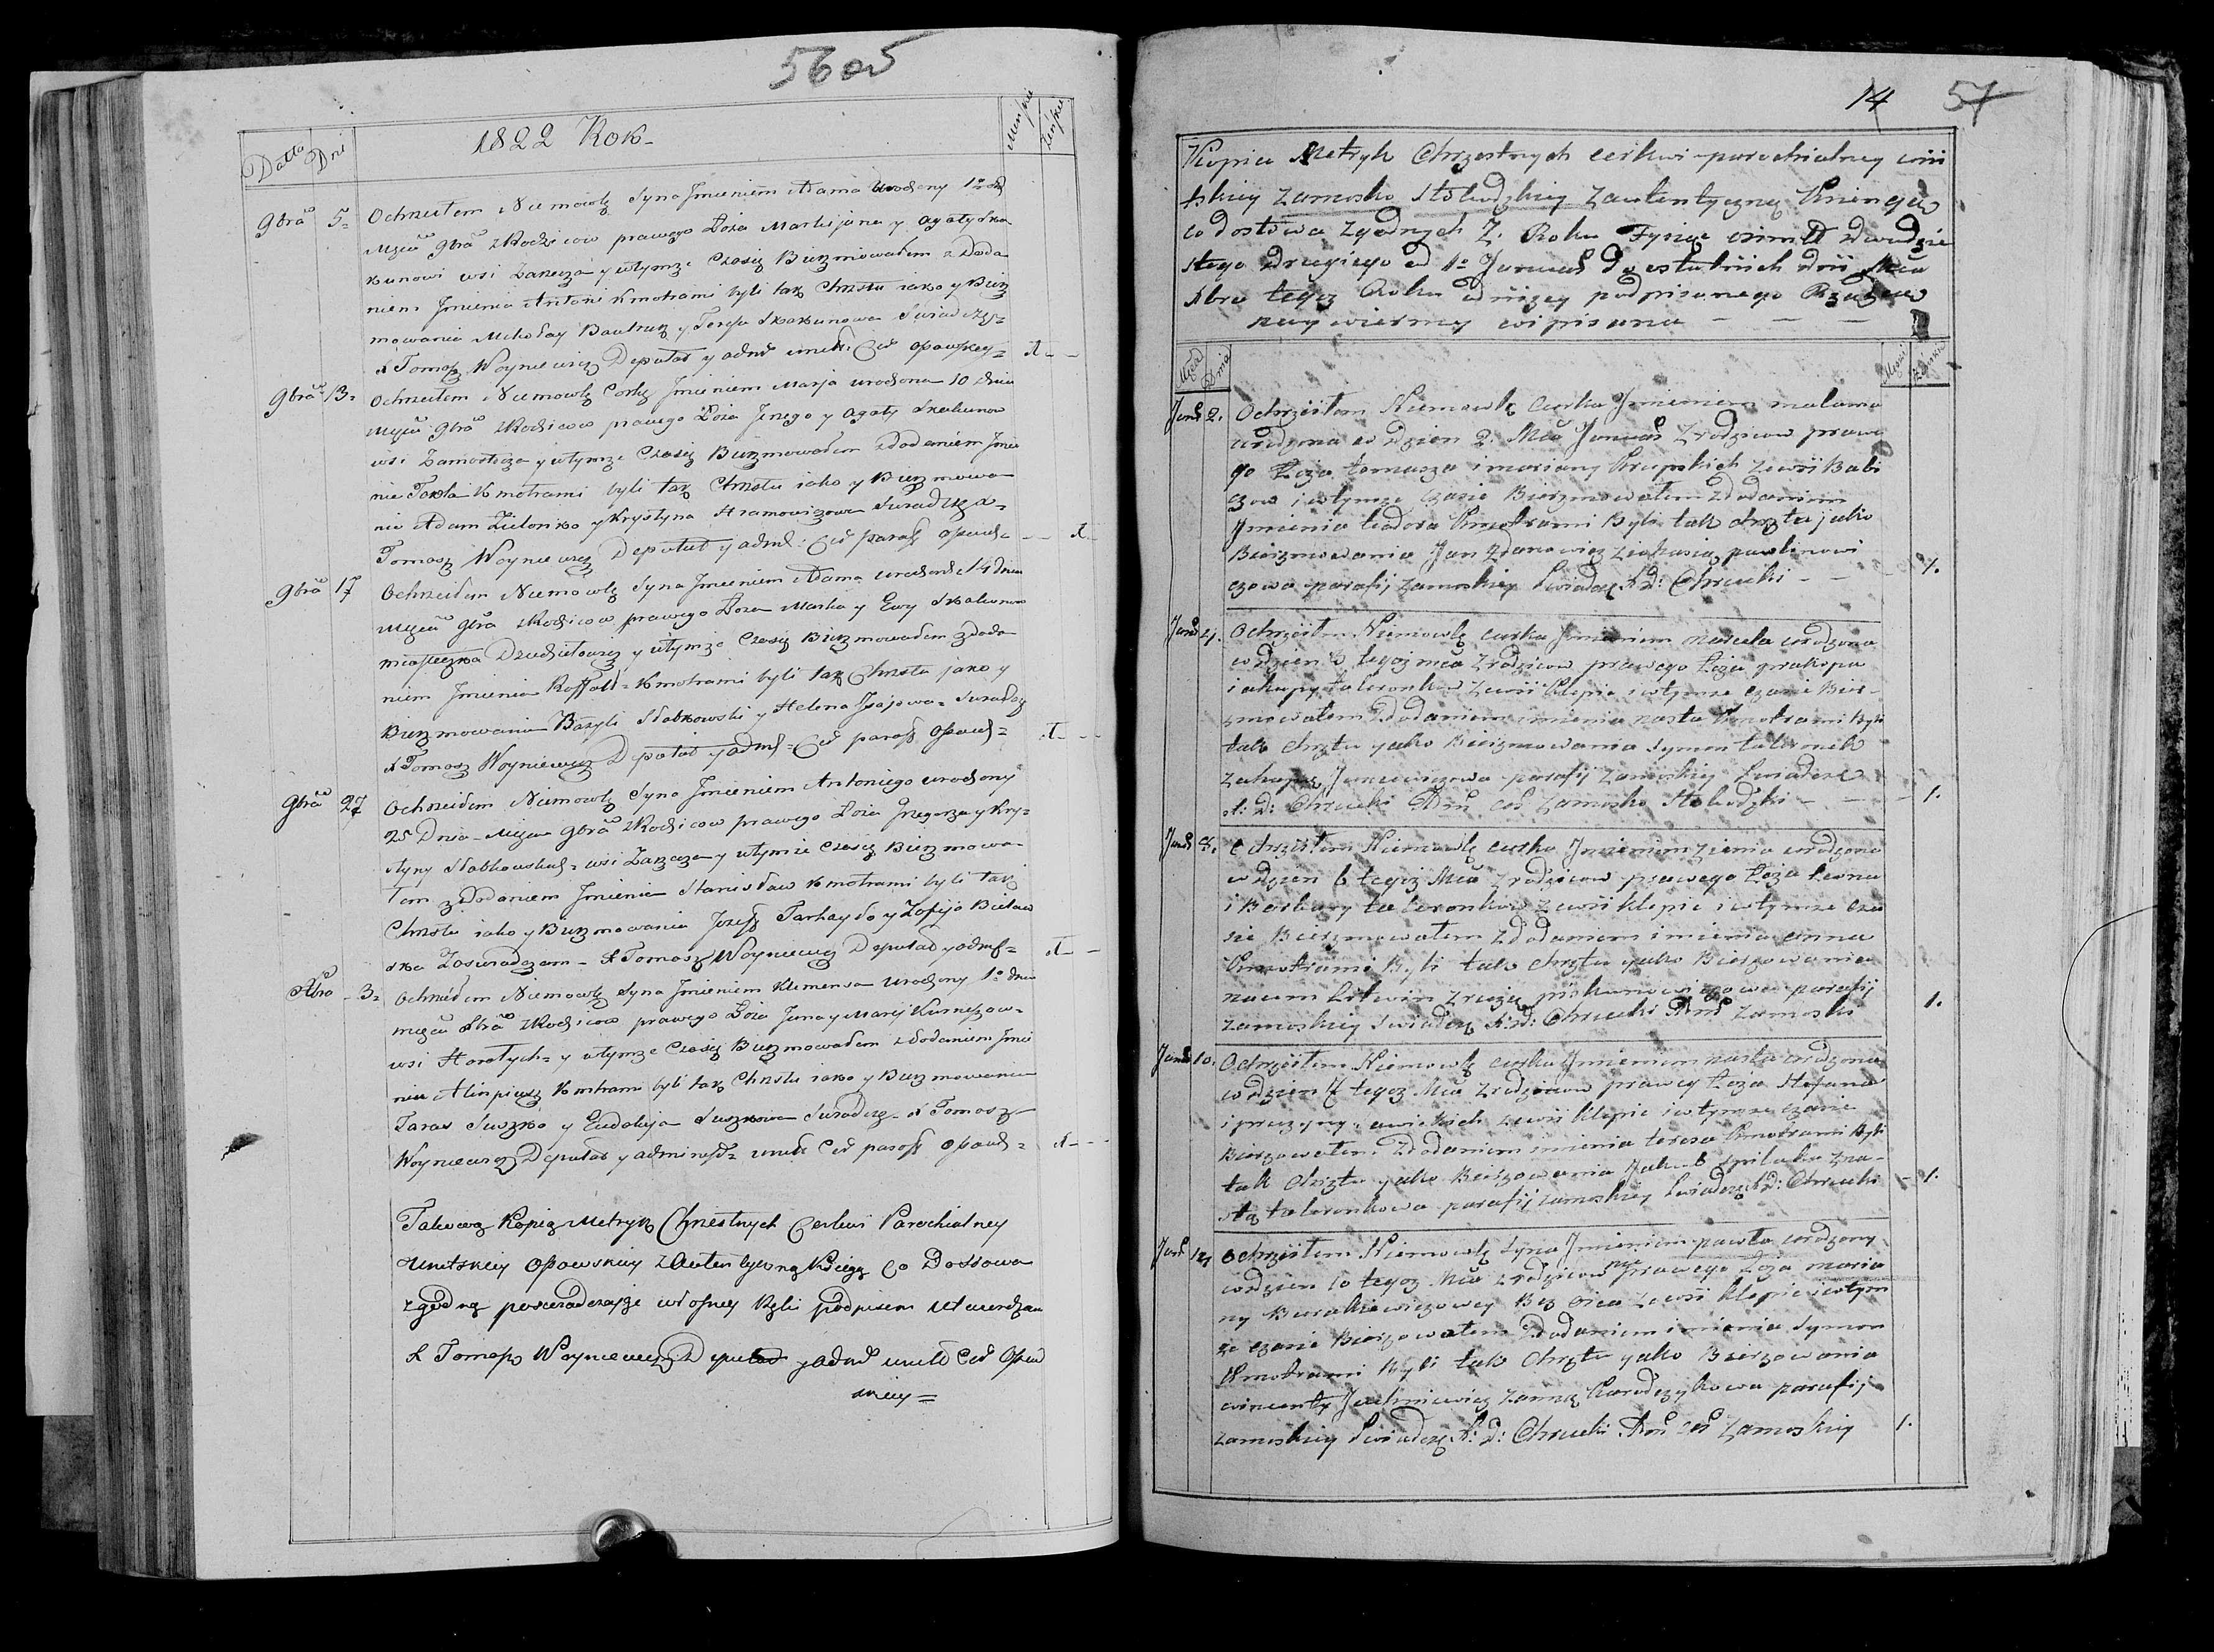 5605
Datta Dni 1822 Rok- Męskie Żeńskie
9bra 5= Ochrzciłem Niemowlę Syna Jmieniem Adama Urodzony 1º
Mca 9bra z Rodzicow prawego Łoża Marcijana y Agaty Ska
kunowi wsi Zarzecza y wtymże Czasię Bierzmowałem z Doda
niem Jmienia Antoni Kmotrami byli tak Chrztu iako y Bierz
mowania Mikołay y Teresa Skakunowa Swiadczy=
X Tomasz Woyniewicz Deputat y admr Cer Opowskey= 1 -
9bra 13= Ochrzciłem Niemowlę Corkę Jmieniem Marja urodzona 10 dnia
Mca 9bra z Rodzicow prawego Łoża y Agaty Skakunow
wsi Zamostoza y wtymże Czasię Bierzmowałem z Dodaniem Jmie
nia Tekla Kmotrami byli tak Chrztu iako y Bierzmowa
nia Adam Zielonko y Krystyna Swiadczę X
Tomasz Woyniewicz Deputat y adm: Cer paraf Opows= - 1
9bra 17 Ochrzciłem Niemowlę Syna Jmieniem Adama urodzony 14 dnia
Mca 9bra z Rodzicow prawego Łoża Marka y Ewy Skakunow
miasteczka y wtymże Czasię Bierzmowałem z doda
niem Jmienia = Kmotrami byli tak Chrztu jako y
Bierzmowania Bazyli Słabkowski y Helena = Swiadczę
X Tomasz Woyniewicz Deputat y adm= Cer paraf Opows= 1 -
9bra 27 Ochrzciłem Niemowlę Syna Jmieniem Antoniego urodzony
25 Dnia Mca 9bra z Rodzicow prawego Łoża Grzegorza y Kry=
styny Słabkowskich= wsi Zarzecza y wtymże Czasię Bierzmowa-
łem z Dodaniem Jmienia Stanisław Kmotrami byli tak
Chrztu iako y Bierzmowania Jozef y Zofija Bielaw
ska Zaswiadczam - X Tomasz Woyniewicz Deputat y adm= 1 -
Xbra - 3= Ochrzciłem Niemowlę Syna Jmieniem Klemensa Urodzony 1º dnia
mca Xbra z Rodzicow prawego Łoża Jana y Marij
wsi y wtymże Czasię Bierzmowałem z dodaniem Jmie
nia Kmotrami byli tak Chrztu iako y Bierzmowania
Taras Suszko y Eudokija Suszkowa Swiadczę X Tomasz
Woyniewicz Deputat y administ= Cer paraf Opows= 1 -
Takową Kopię Metryk Chrzestnych Cerkwi Parochialney
Unitskiey Opowskiey z Autentyczną Księgą co Dosłowa
zgodną poswiadczaiąc własney Ręki podpisem utwierdzam
X Tomasz Woyniewicz Deputat y Adm Cer Opow
skiey=
14 57
Kopia Metryk Chrzestnych Cerkwi parochialney uni
tskiey Zamosko Słobodzkiey Zautentyczną Kniengą
Co dosłowa Zgodnych Z. Roku Tysiąc osimset dwudzie
stego drugiego od 1º Januar do ostatniich dnii Mca
Xbra tegoż Roku odniżey podpisanego Rządcę
naywierniey wipisana - - -
Dnia Męski Żenska
Janr 2. Ochrziłem Niemowlę curka Jmieniem
urodzona w Dzien 2. Mca Januar Zrodzicow prawe
go Łoża tomasza i mariany Krupskich Zewsi Babi
czow iwtymże czasie Bierzmowałem Zdodaniem
Jmienia teodora Kmotrami Byli tak chrztu jako
Bierzmowania Jan Zdanowicz pawlinowi
czowa parafij Zamoskiey Swiadczę X: D: Chrucki - - 1.
Janr 4. Ochrziłem Niemowlę curka Jmieniem urodzona
w dzien 3 tegoż mca Zrodzicow prawego Łoża prakopa
i ahapy taleronkow Zewsi Klepie iwtymże czasie Bier-
zmowałem Zdodaniem imienia nasta Kmotrami Byli
tak chrztu yako Bierzmowania Symon taleronek
parafij Zamoskiey Swiadcze
X: D: Chrucki Adm Cer Zamosko Słobodzki - - - 1.
Janr 8. Ochrziłem Niemowlę curka Jmieniem urodzona
w dzien 6 tegoż Mca Zrodzicow prawego Łoża
i Barbary taleronkow Zewsi Klepie iwtymże cza
sie Bierzmowałem Zdodaniem imienia anna
Kmotrami Byli tak chrztu yako Bierzowania
naum Litwin parafij
Zamoskiey Swiadczę X: D: Chrucki Adm Zamoski 1.
Janr 10. Ochrziłem Niemowlę curka Jmieniem nasta urodzona
w dzien tegoż Mca Zrodzicow prawey Łoża Stefana
i zewsi Klepie iwtymże czasie
Bierzowałem Zdodaniem imienia teresa Kmotrami Byli
tak chrztu yako Bierzowania Jakub
taleronkowa parafij zamoskiey Swiadczę X: D: Chrucki - 1.
Janr 12 Ochrziłem Niemowlę Syna Jmieniem pawła urodzony
w dzien 10 tegoż Mca Zrodzicow nie prawego Łoża maria
ny Bez oica Zewsi Klepie iwtym
że czasie Bierzowałem Zdodaniem imienia Symon
Kmotrami Byli tak chrztu yako Bierzowania
wincenty parafij
Zamoskiey Swiadczę X: D: Chrucki Adm Cer Zamoskiey 1.